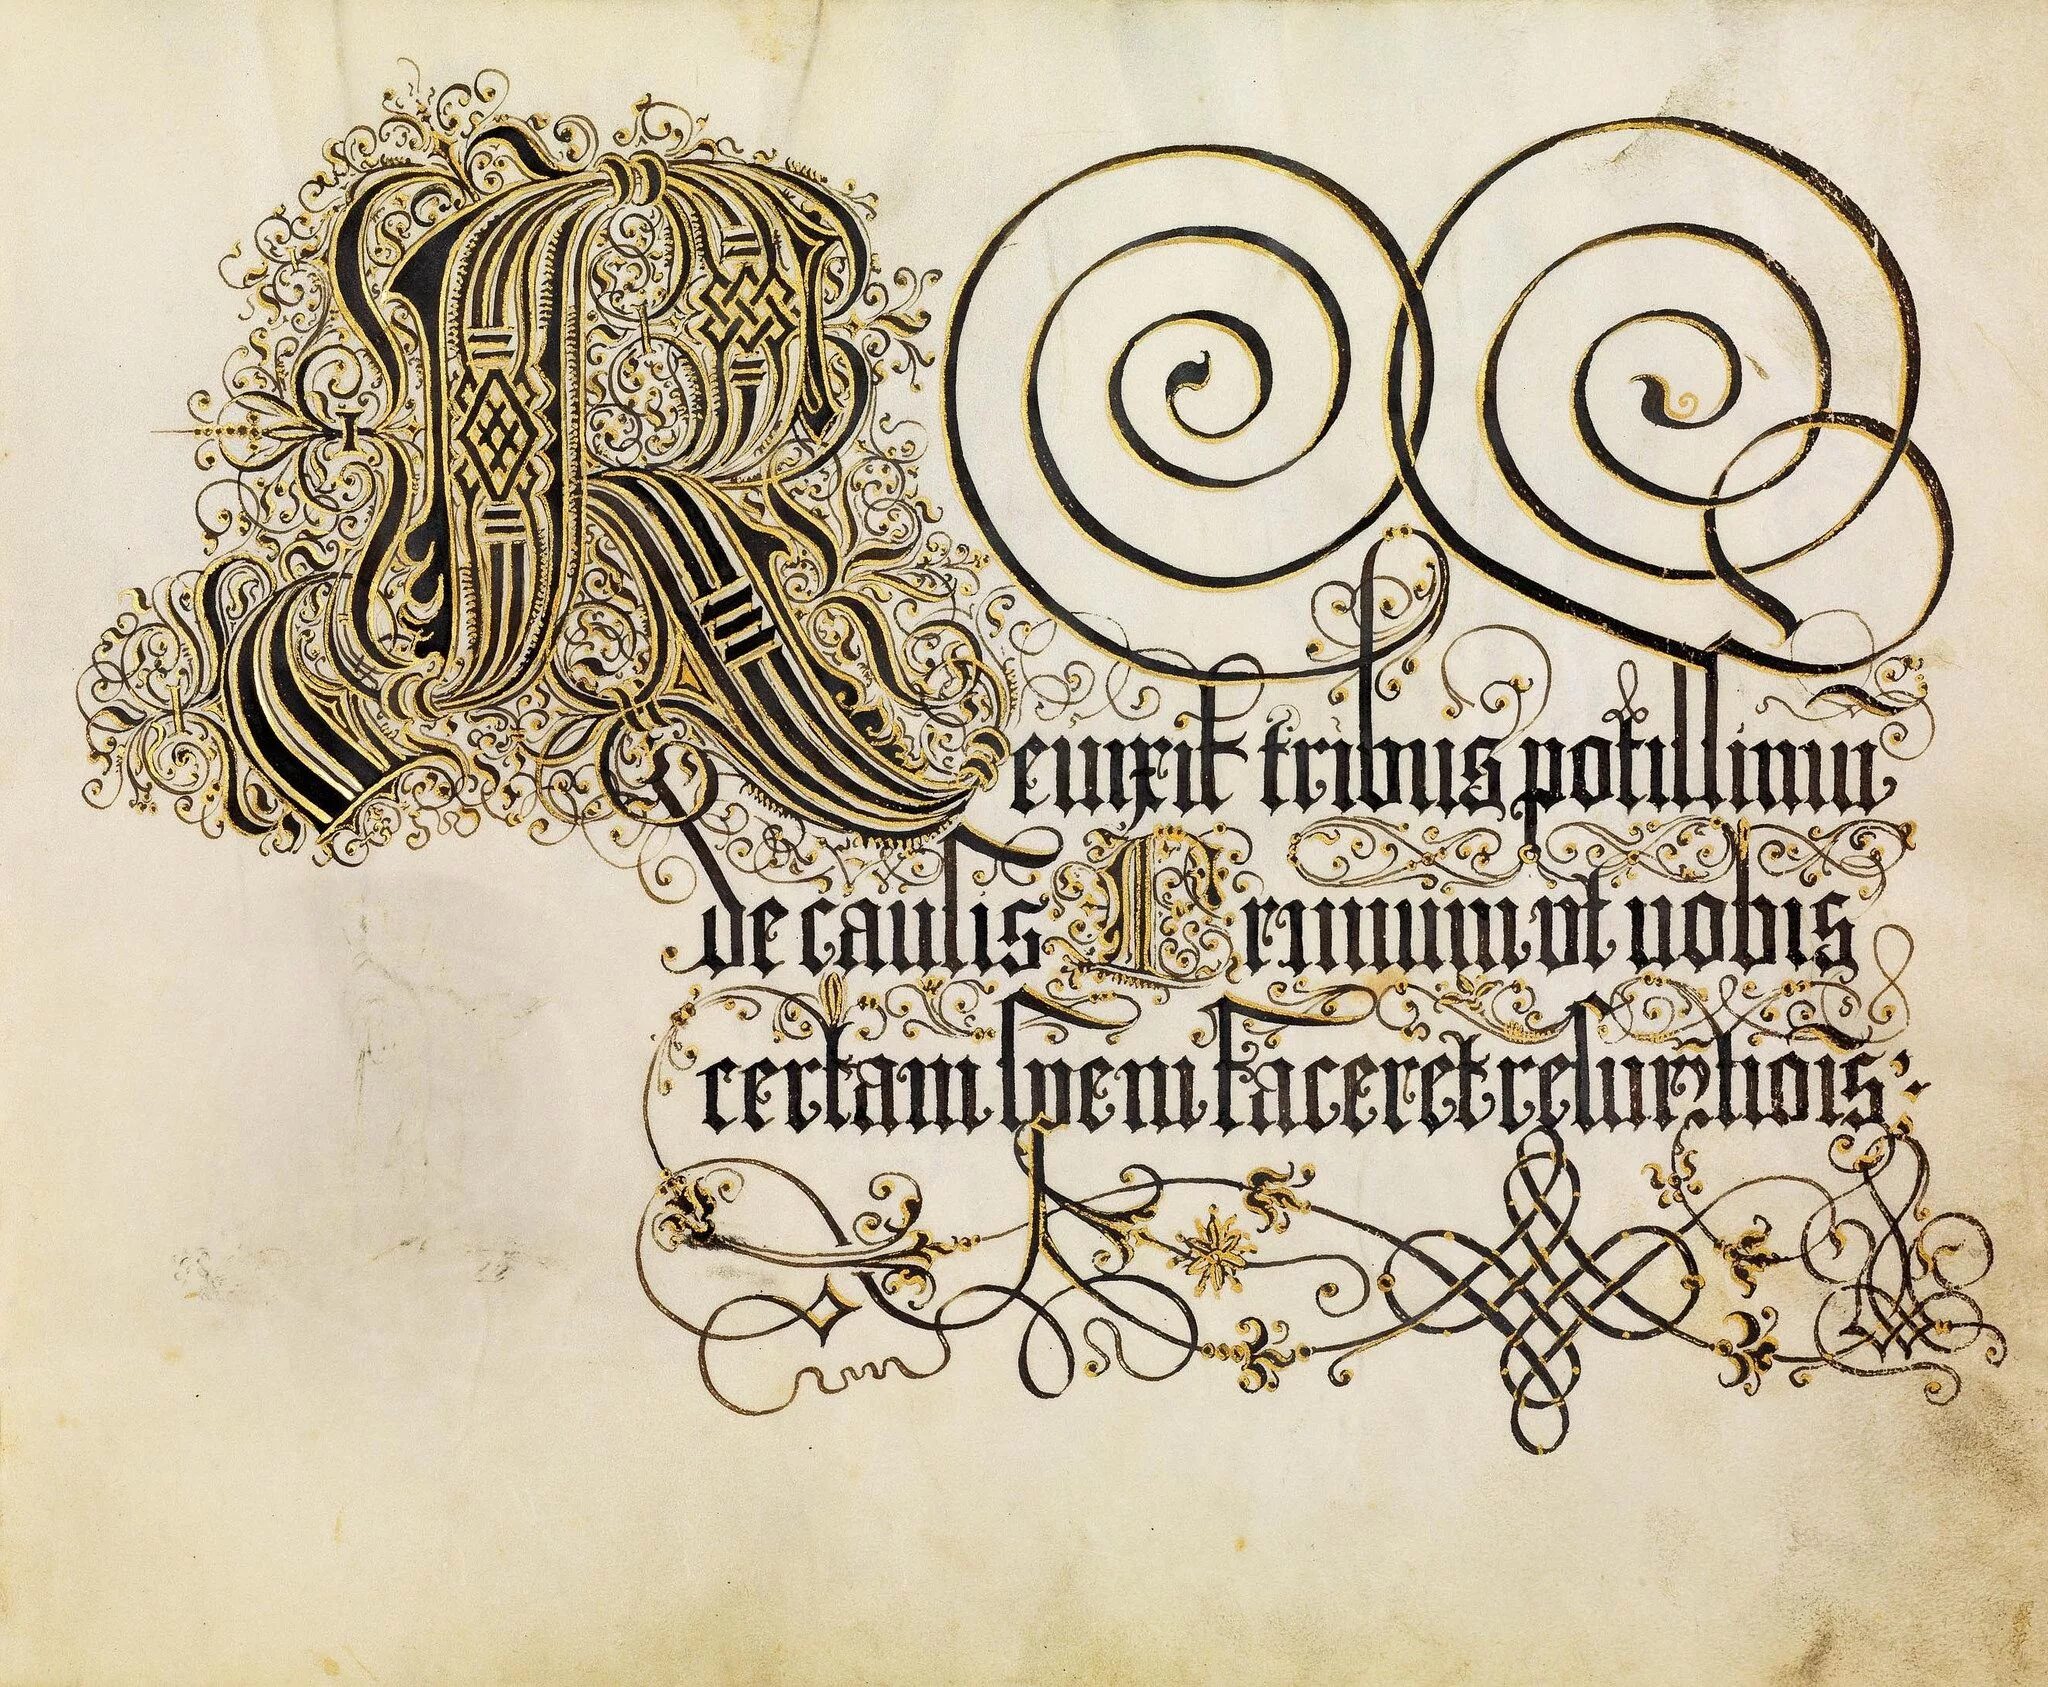 Reuixit tribus potissimū
de causis Primum vt nobis
certam spem faceret resurr̄ctiōis: